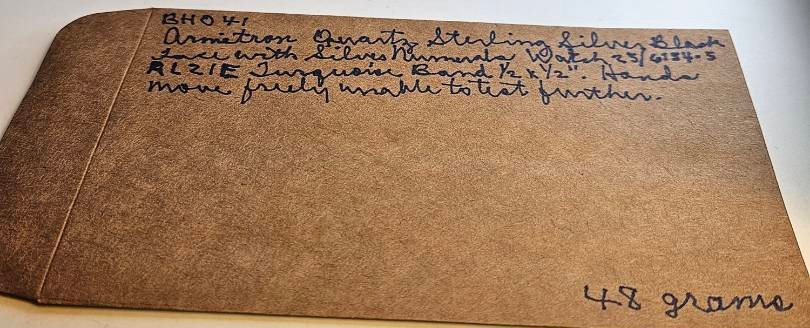 BHO 41
Armitron Quartz Sterling Silver Black
Face with Silver Numerals Watch 25/6154.5
RLZIE Turquoise Band 1/2 x 1/2". Hands
move freely unable to test further.
48 grams